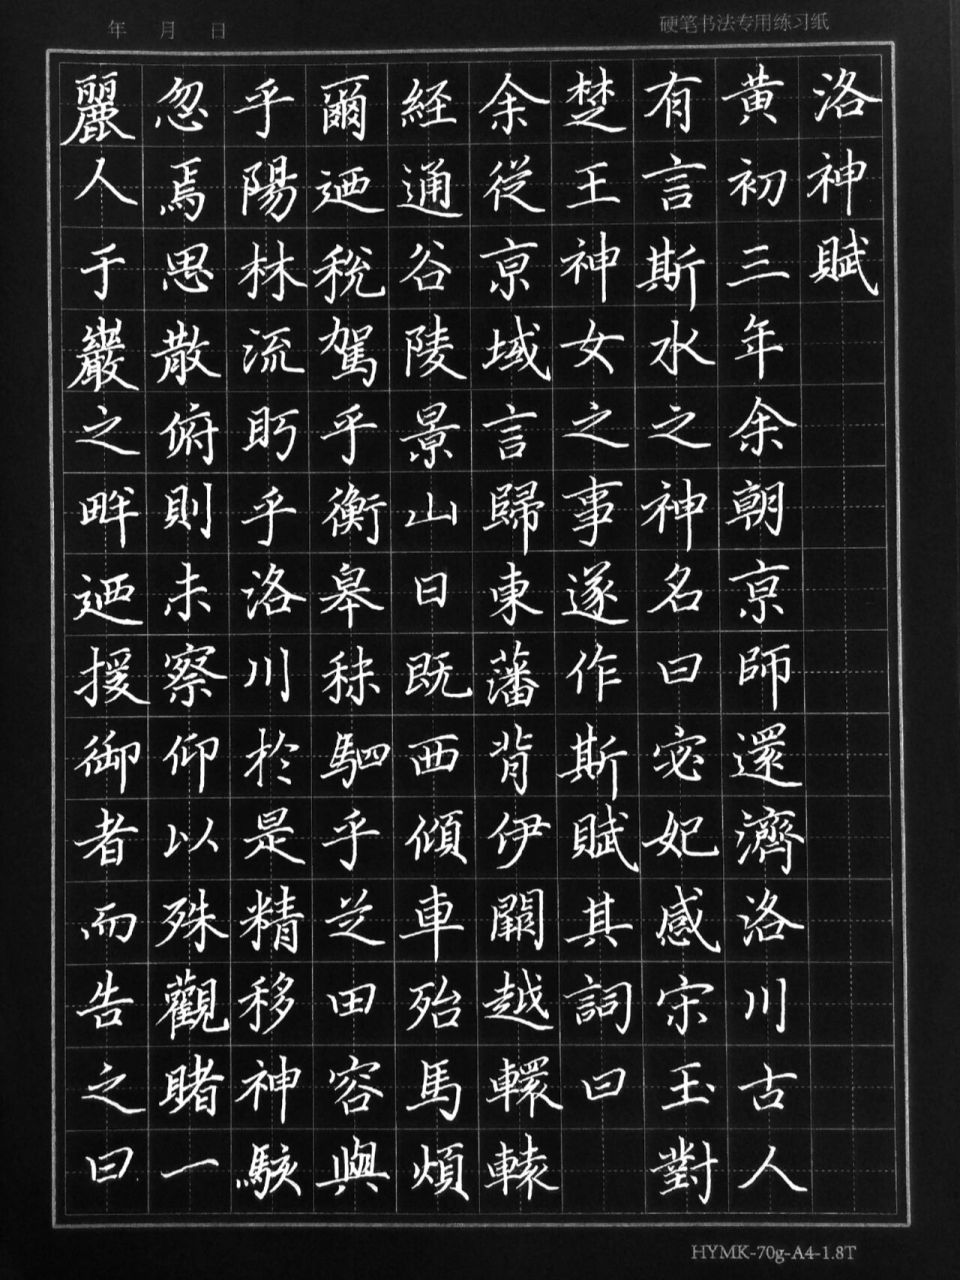 年 月 日
硬笔书法专用练习纸
洛神賦
黃初三年余朝京師還濟洛川古人
有言斯水之神名曰宓妃感宋玉對
楚王神女之事遂作斯賦其詞曰
余從京域言歸東藩背伊闕越轘轅
経通谷陵景山日既西傾車殆馬煩
爾迺稅駕乎衡皋秣駟乎芝田容與
乎陽林流眄乎洛川於是精移神駭
忽焉思散俯則未察仰以殊觀睹一
麗人于巖之畔迺援御者而告之曰
HYMK-70g-A4-1.8T